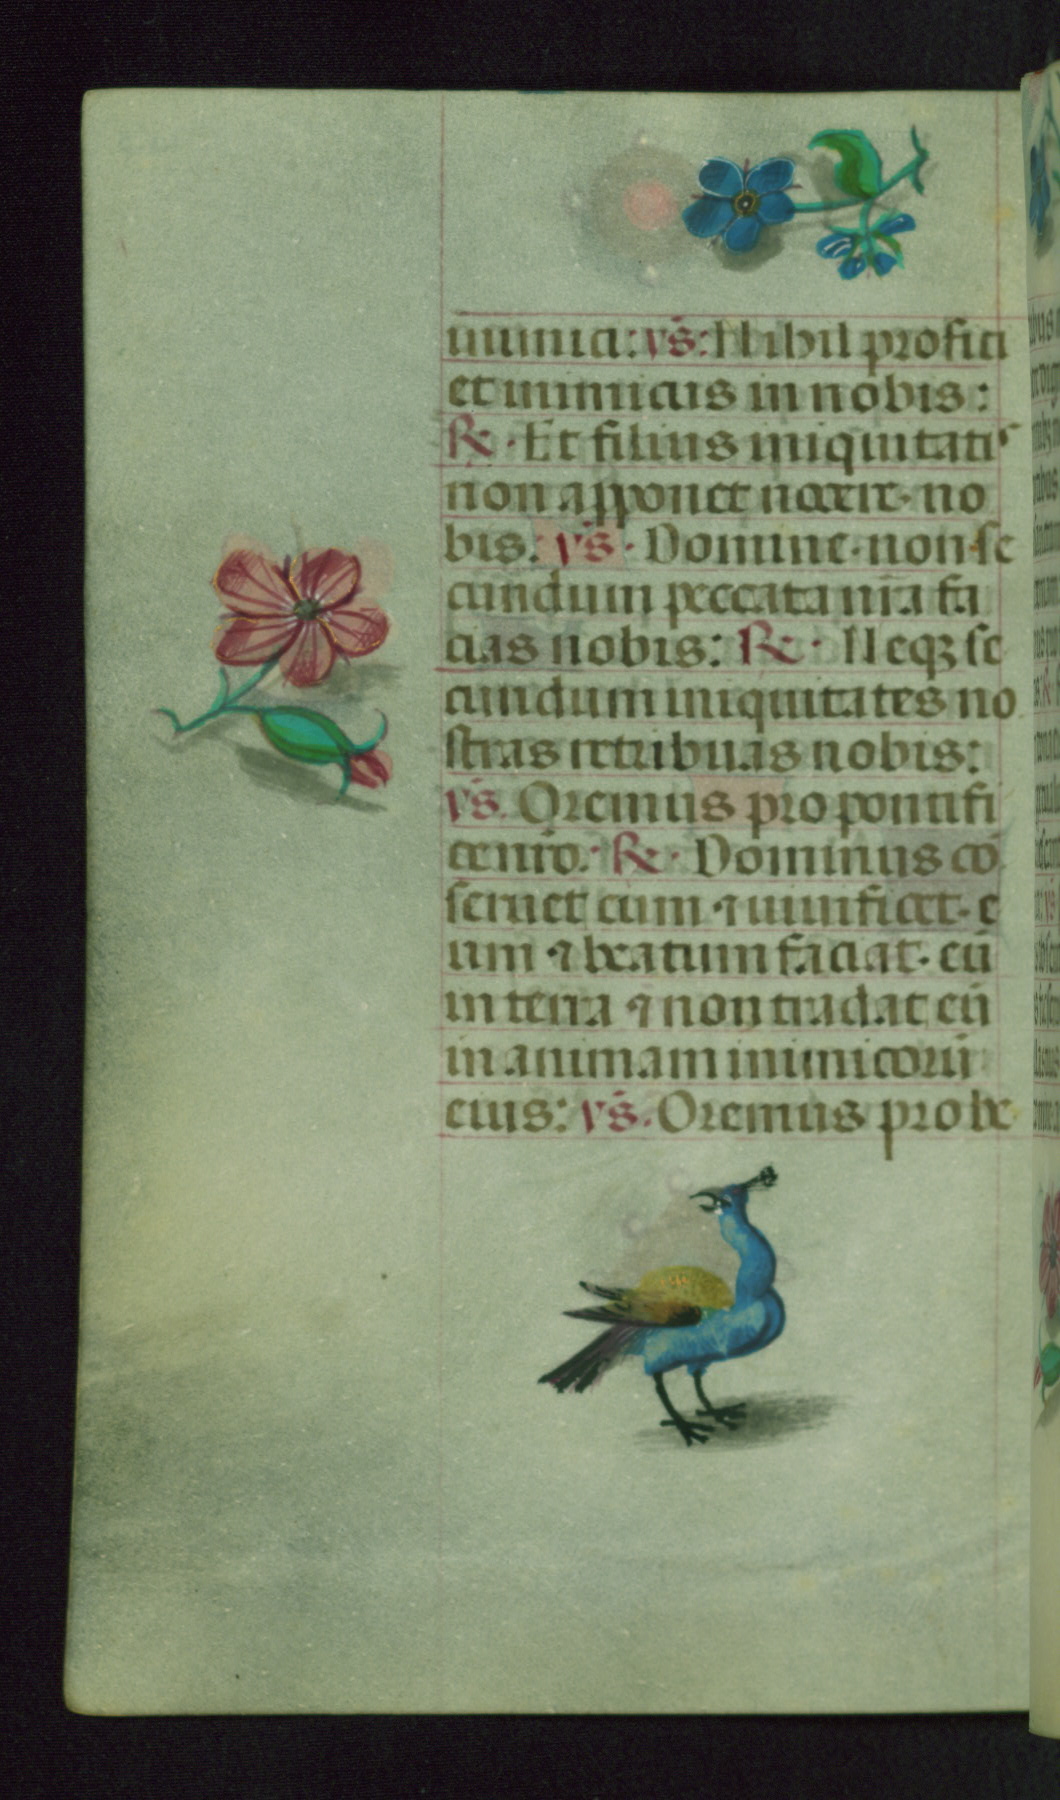 inimici: vs: Nihil profici
et inimicus in nobis:
R. Et filius iniquitatis
non apponet nocere no
bis: vs. Domine non se
cundum peccata nr̄a fa
cias nobis: R. Neqꝫ se
cundum iniquitates no
stras retribuas nobis:
vs. Oremus pro pontifi
ce nr̄o. R. Dominus cō
seruet eum ⁊ uiuificet e
um ⁊ beatum faciat eū
in terra ⁊ non tradat eū
in animam inimicorū
eius: vs. Oremus pro be